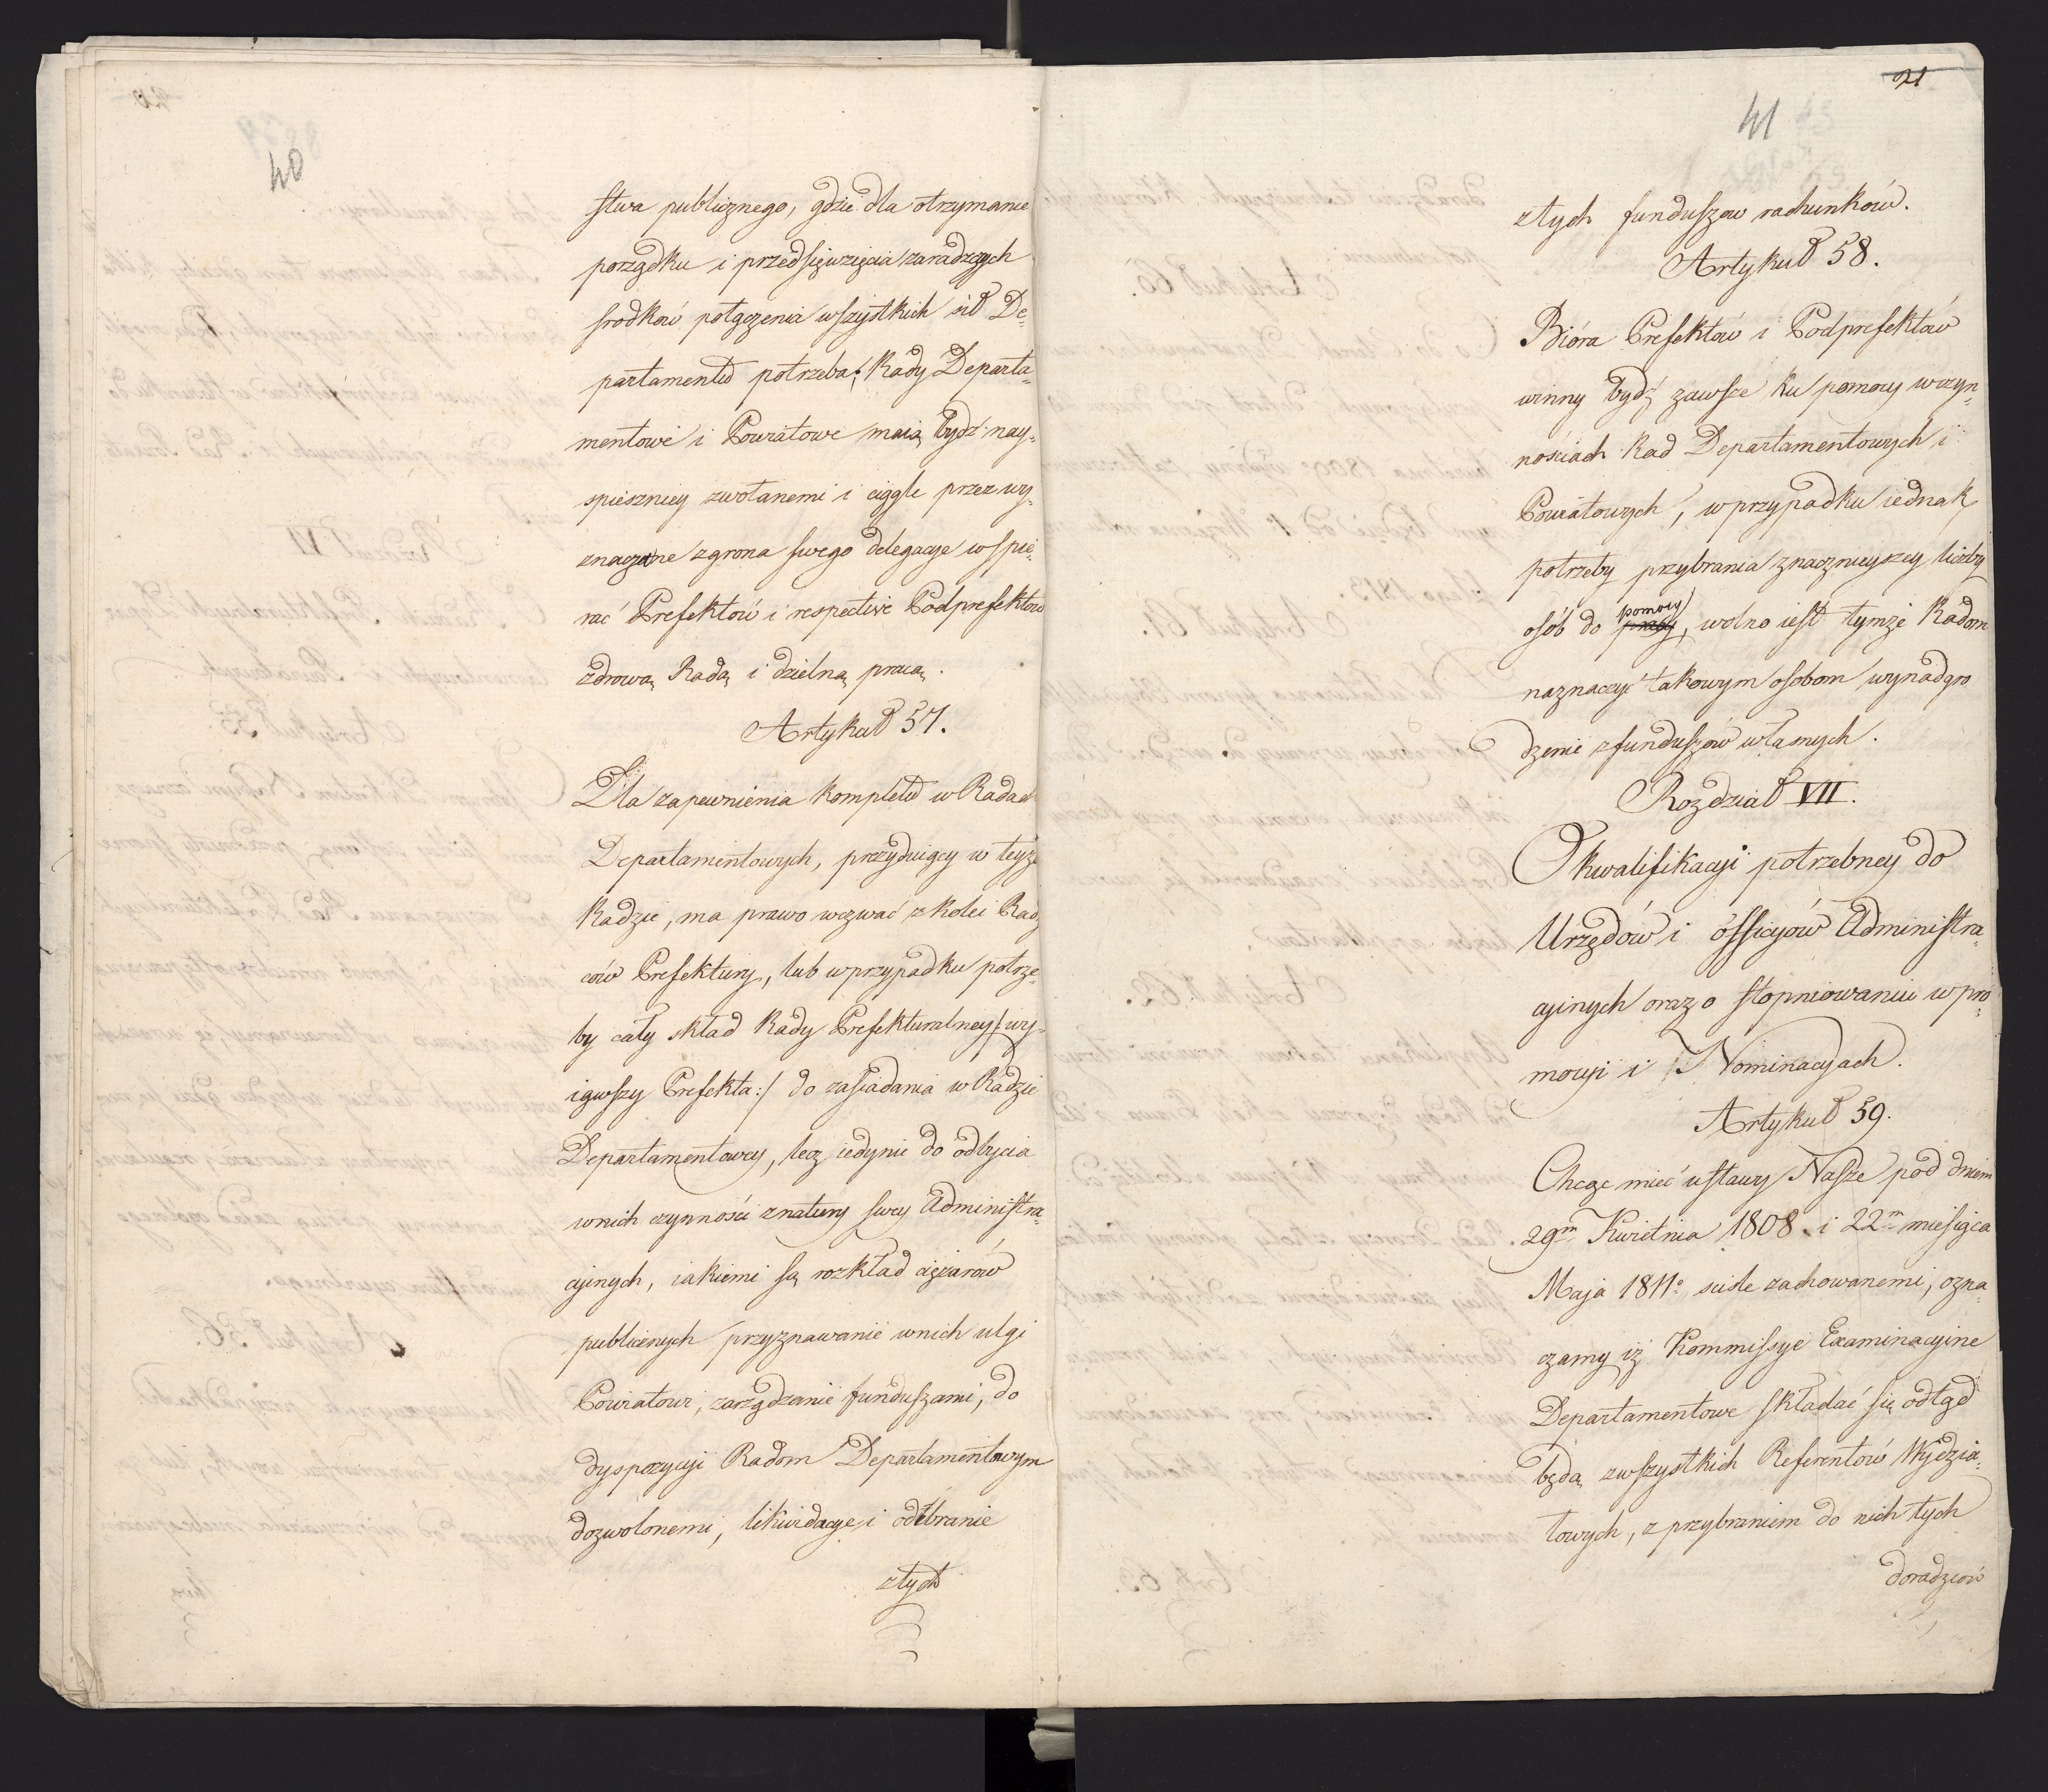 40
stwa publicznego, gdzie dla otrzymanie
porządku i przedsięwzięcia zaradczych
srodków połączenia wszystkich sił De=
partamentu potrzeba; Rady Departa=
mentowe i Powiatowe maią bydź nay=
spieszniey zwołanemi i ciągle przez wy=
znaczone z grona swego delegacye wspie=
rać Prefektów i respective Podprefektow
zdrową Radą i dzielną pracą.
Artykuł 57.
Dla zapewnienia kompletu w Radach
Departamentowych, prezyduiący w teyże
Radzie, ma prawo wezwać z kolei Rad,
ców Prefektury, lub w przypadku potrze=
by cały skład Rady Prefekturalney /: wy=
iąwszy Prefekta :/ do zasiadania w Radzie
Departamentowey, lecz iedynie do odbycia
w nich czynności z natury swey Administra=
cyinych, iakiemi są rozkład ciężarów
publicznych przyznawanie w nich ulgi
Powiatowi, zarządzanie funduszami, do
dyspozycyi Radom Departamentowym
dozwolonemi, likwidacye i odebranie
z tych
21
41
z tych funduszow rachunków.
Artykuł 58.
Bióra Prefektów i Podprefektów
winny bydź zawsze ku pomocy w czyn=
nościach Rad Departamentowych i
Powiatowych, w przypadku iednak
potrzeby przybrania znacznieyszey liczby
osób do pracy pomocy, wolno iest tymże Radom
naznaczyć takowym osobom wynadgro
dzenie z funduszów własnych.
Rozdział VII.
O kwalifikacyi potrzebney do
Urzędów i officyów Administra=
cyinych oraz o stopniowaniu w pro=
mocyi i Nominacyach.
Artykuł 59.
Chcąc mieć ustawy Nasze pod dniem
29m Kwietnia 1808 i 22m miesiąca
Maja 1811o scisle zachowanemi, ozna=
czamy iż Kommissye Examinacyine
Departamentowe składać się odtąd
będą z wszystkich Referentów Wydzia=
łowych, z przybraniem do nich tych
doradzców